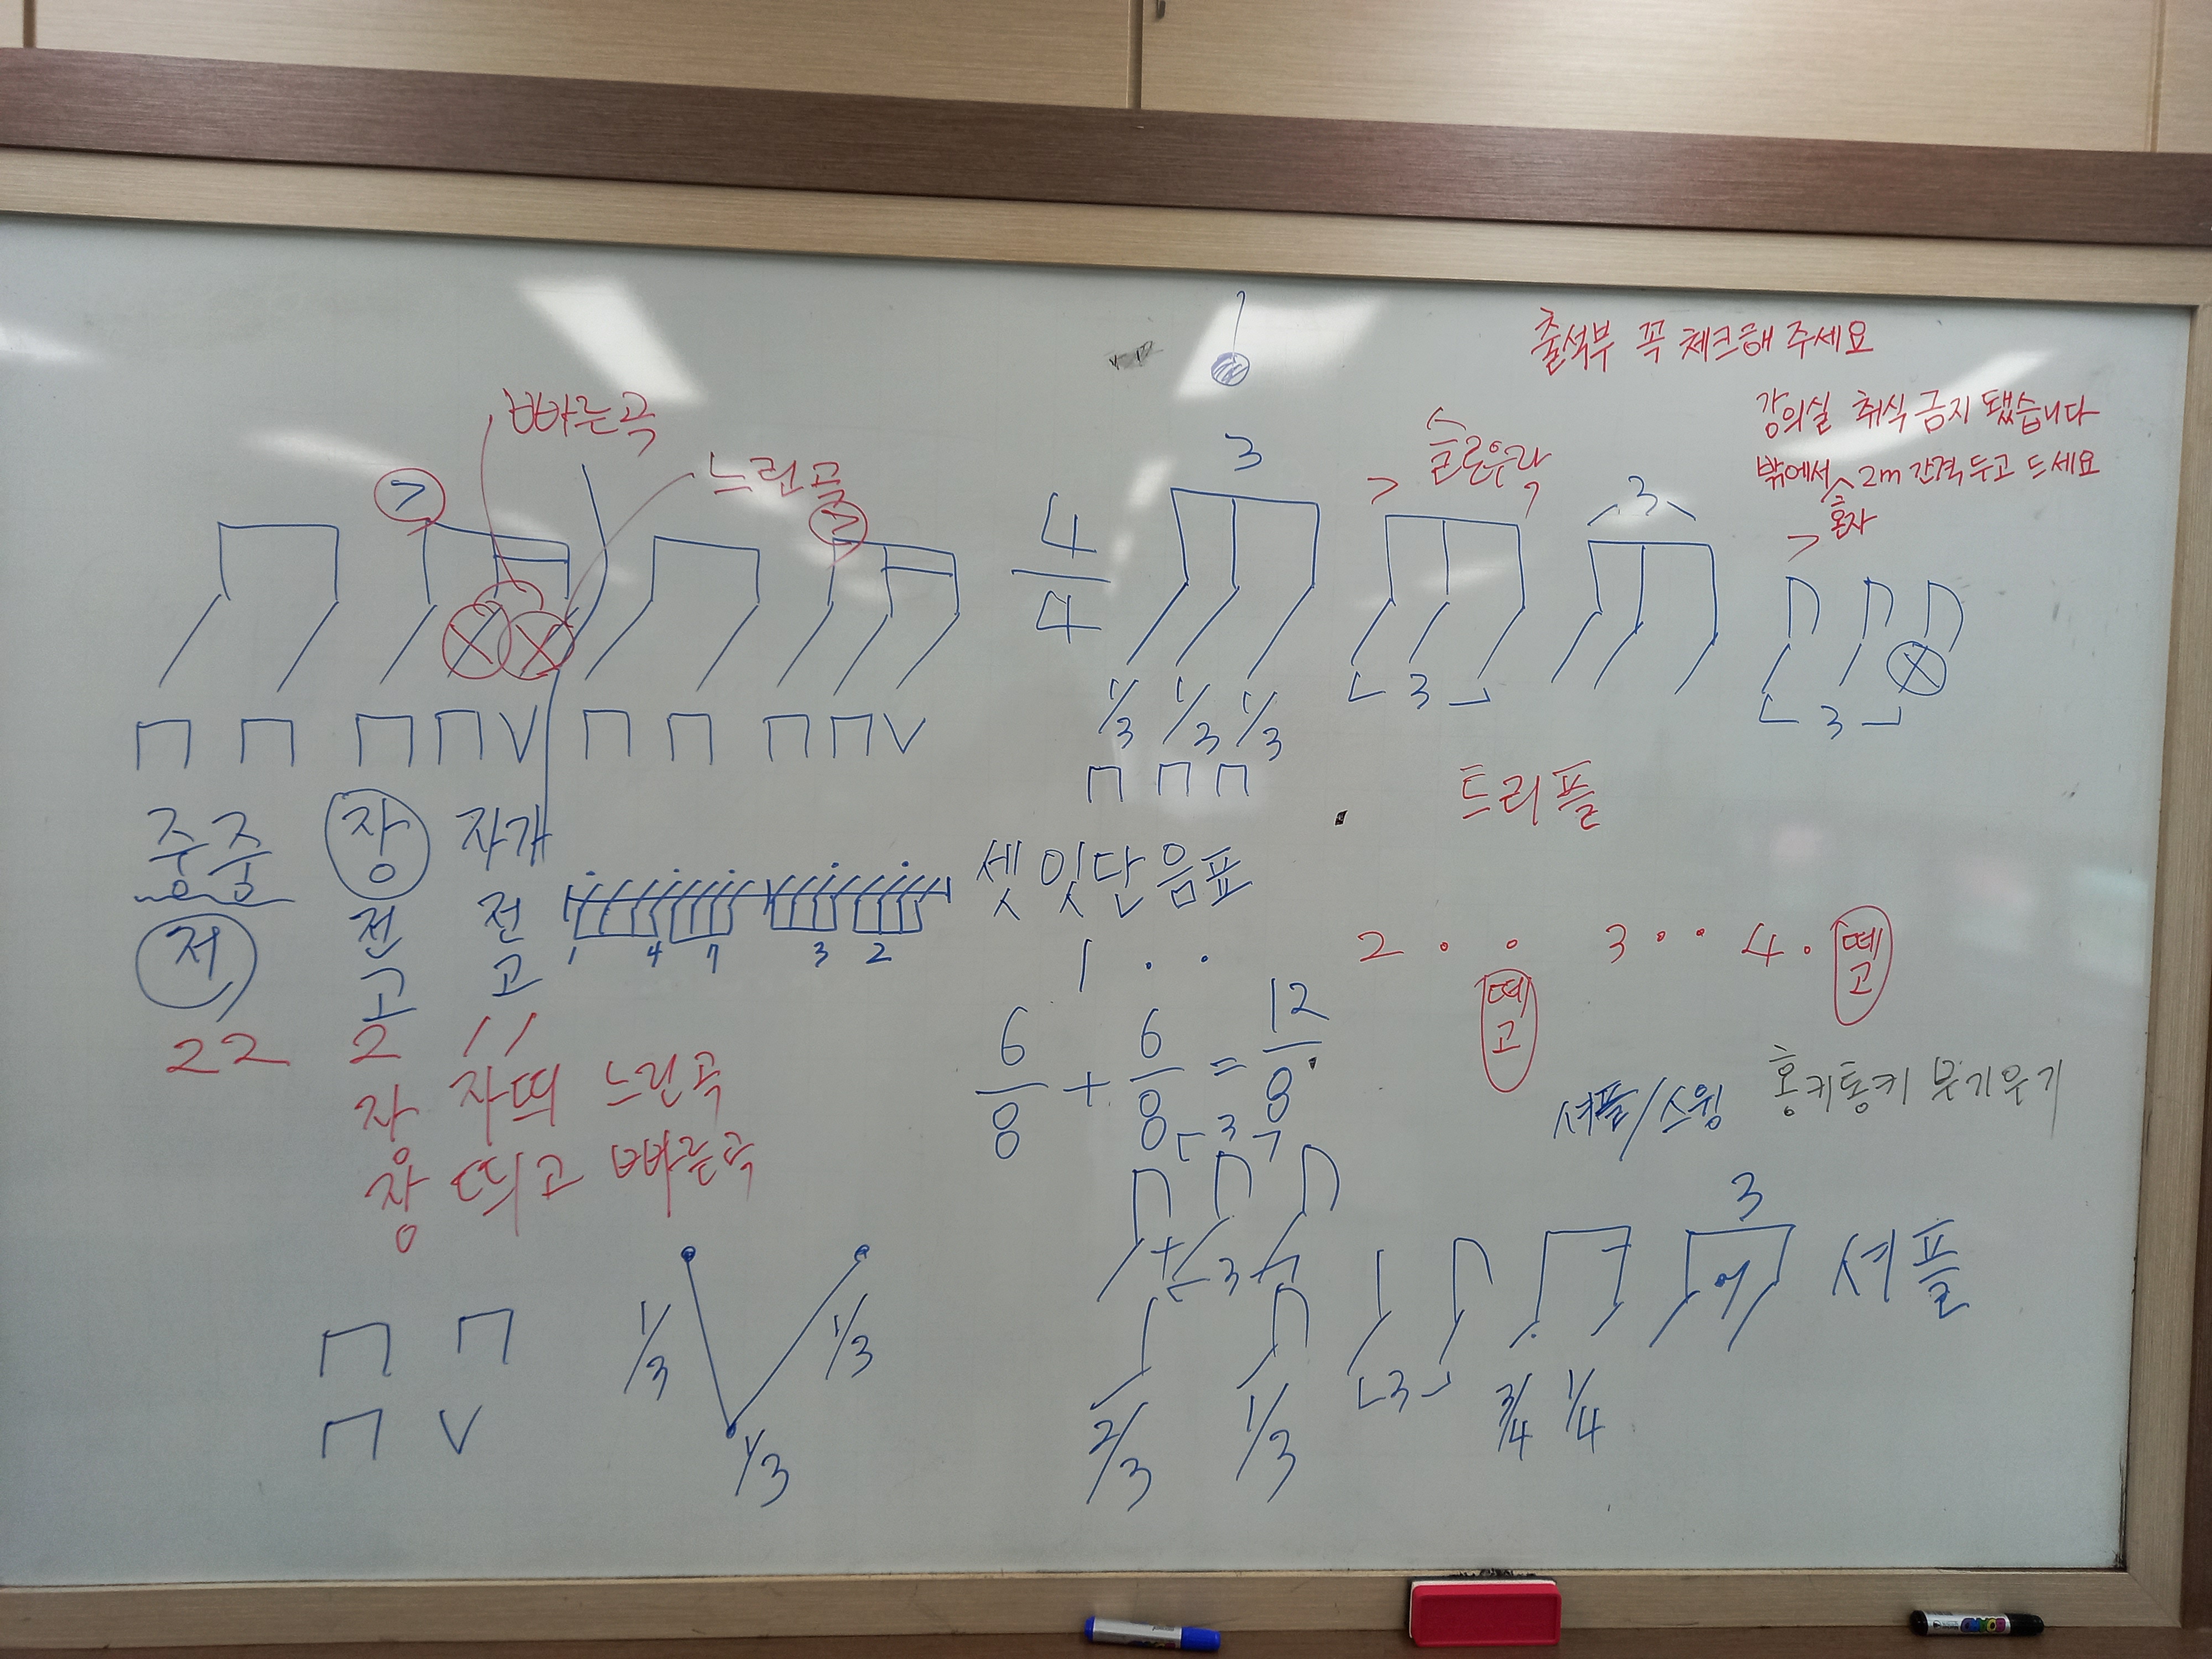 출석부 꼭 체크해 주세요
강의실 취식 금지 됐습니다
밖에서 2m 간격 두고 드세요
혼자
빠른곡
느린곡
4/4
3
슬로우락
3
1/3 1/3 1/3
3
3
트리플
주웅 장 자개
저 전고 전고
1 4 7 3 2
22 2 11
자 자띄 느린곡
장 띄고 빠른곡
셋잇단음표
1 · · 2 · · 3 · · 4 ·
떼고
떼고
6/8 + 6/8 = 12/8
셔플/스윙
홍키통키 부기우기
3
3
3
3
셔플
2/3 1/3
3/4 1/4
1/3 1/3
1/3